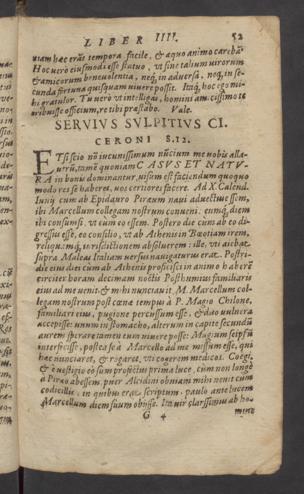 LIBER IIII. 52
uiam hac eräs tempora facile, & æquo animo carebā
Hoc uerò eiusmodi esse statuo, ut sine talium uirorum
& amicorum beneuolentia, neq, in aduersa, neq, in se-
cunda fortuna quisquam uiuere possit. Itaq, hoc ego mi-
hi gratulor. Tu uerò ut intelligas, homini amicissimo te
tribuisse officium, re tibi præstabo. Vale.
SERVIVS SVLPITIVS CI.
CERONI S. 12.
ETsi scio nō iucundissimum nūcium me uobis alla-
turū, tamē quoniam CASVS ET NATV-
RA in bonu dominantur, uisum est faciendum quoquo
modo res se haberet, uos certiores facere. Ad X Calend.
Iunij cum ab Epidauro Piræum naui aduectus essem,
ibi Marcellum collegam nostrum conueni. eumq, diem
ibi consumsi. ut cum eo essem. Postero die cum ab eo di-
gressus essē, eo consilio, ut ab Athenis in Bœotiam irem,
reliquumq, iurisdictionem absoluerem: ille, uti aiebat
supra Maleas Italiam uersus nauigaturus erat. Postri-
die eius diei cum ab Athenis proficisci in animo haberē
circiter horam decimam noctis Posthumius familiaris
eius ad me uenit. & mihi nunciauit M. Marcellum col-
legam nostrum post cœnæ tempus à P. Magio Chilone,
familiari eius, pugione percussum esse, & duo uulnera
accepisse: unum in stomacho, alterum in capite secundū
aurem: sperare tamen eum uiuere posse: Magium seipsū
interfecisse, postea se à Marcello ad me missum esse, qui
hæc nunciaret, & rogaret, uti cogerem medicos. Coegi,
& è uestigio eò sum profectus prima luce. cum non longè
à Piræo abessem, puer Acidini obuiam mihi uenit cum
codicillis. in quibus erat scriptum, paulo ante lucem
Marcellum diem suum obiisse. Ita uir clarissimus ab ho-
G 4 mine